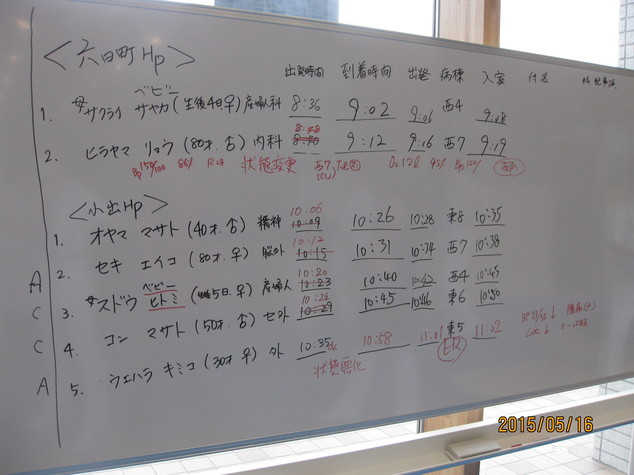 <六日町Hp>
出発時間 到着時間 出発 病棟 入室
ベビー
1. サクライ サヤカ (生後4日♀) 産婦人科 8:36 9:02 9:06 西4 9:08
8:48
2. ヒラヤマ リョウ (80才.♂) 内科 8:40 9:12 9:16 西7 9:19
Bp150/100 状態変更 西7
<小出Hp>
10:06
1. オヤマ マサト (40才.♂) 精神 10:09 10:26 10:28 東8 10:35
10:12
2. セキ エイコ (80才.♀) 脳外 10:15 10:31 10:34 西7 10:38
ベビー 10:20
A 3. スドウ ヒトミ 5日.♀) 産婦人 10:23 10:40 10:42 西4 10:45
10:26
C 4. コン マサト (50才.♂) 10:29 10:45 10:46 東6 10:50
東5
C 10:35 10:58 11:01 ER 11:02
A 5. ウエハラ キミコ (30才 ♀) 外
状態悪化
2015/05/16